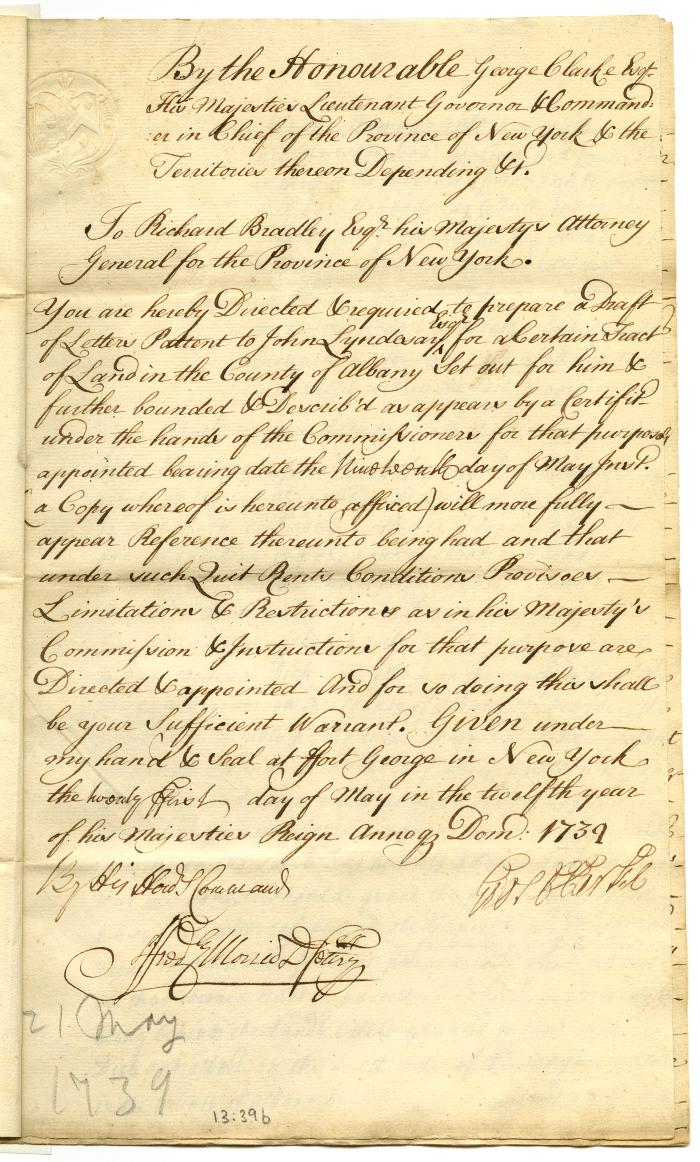 By the Honourable George Clarke Esqr.
His Majesties Lieutenant Governor & Command:
:er in Chief of the Province of New York & the
Territories thereon Depending &t.
To Richard Bradley Esqr. his Majestys Attorney
General for the Province of New York.
You are hereby Directed & required to prepare a Draft
of Letters Pattent to John Lyndesay Esqr. for a Certain Tract
of Land in the County of Albany Set out for him &
further bounded & Describ'd as appears by a Certifit.
under the hands of the Commissioners for that purpose
appointed bearing date the Nineteenth day of May Inst.
(a Copy whereof is hereunto affixed) will more fully
appear Reference thereunto being had and that
under such Quit Rents Conditions Provisoes
Limitations & Restrictions as in his Majesty's
Commission & Instructions for that purpose are
Directed & appointed And for so doing this shall
be your Sufficient Warrant. Given under
my hand & Seal at ffort George in New York
the twenty ffirst day of May in the twelfth year
of his Majesties Reign Annoq Dom: 1739
By His Honrs. Command
Geo: Clarke
ffred Morris D Secry
21 May
1739
13:396